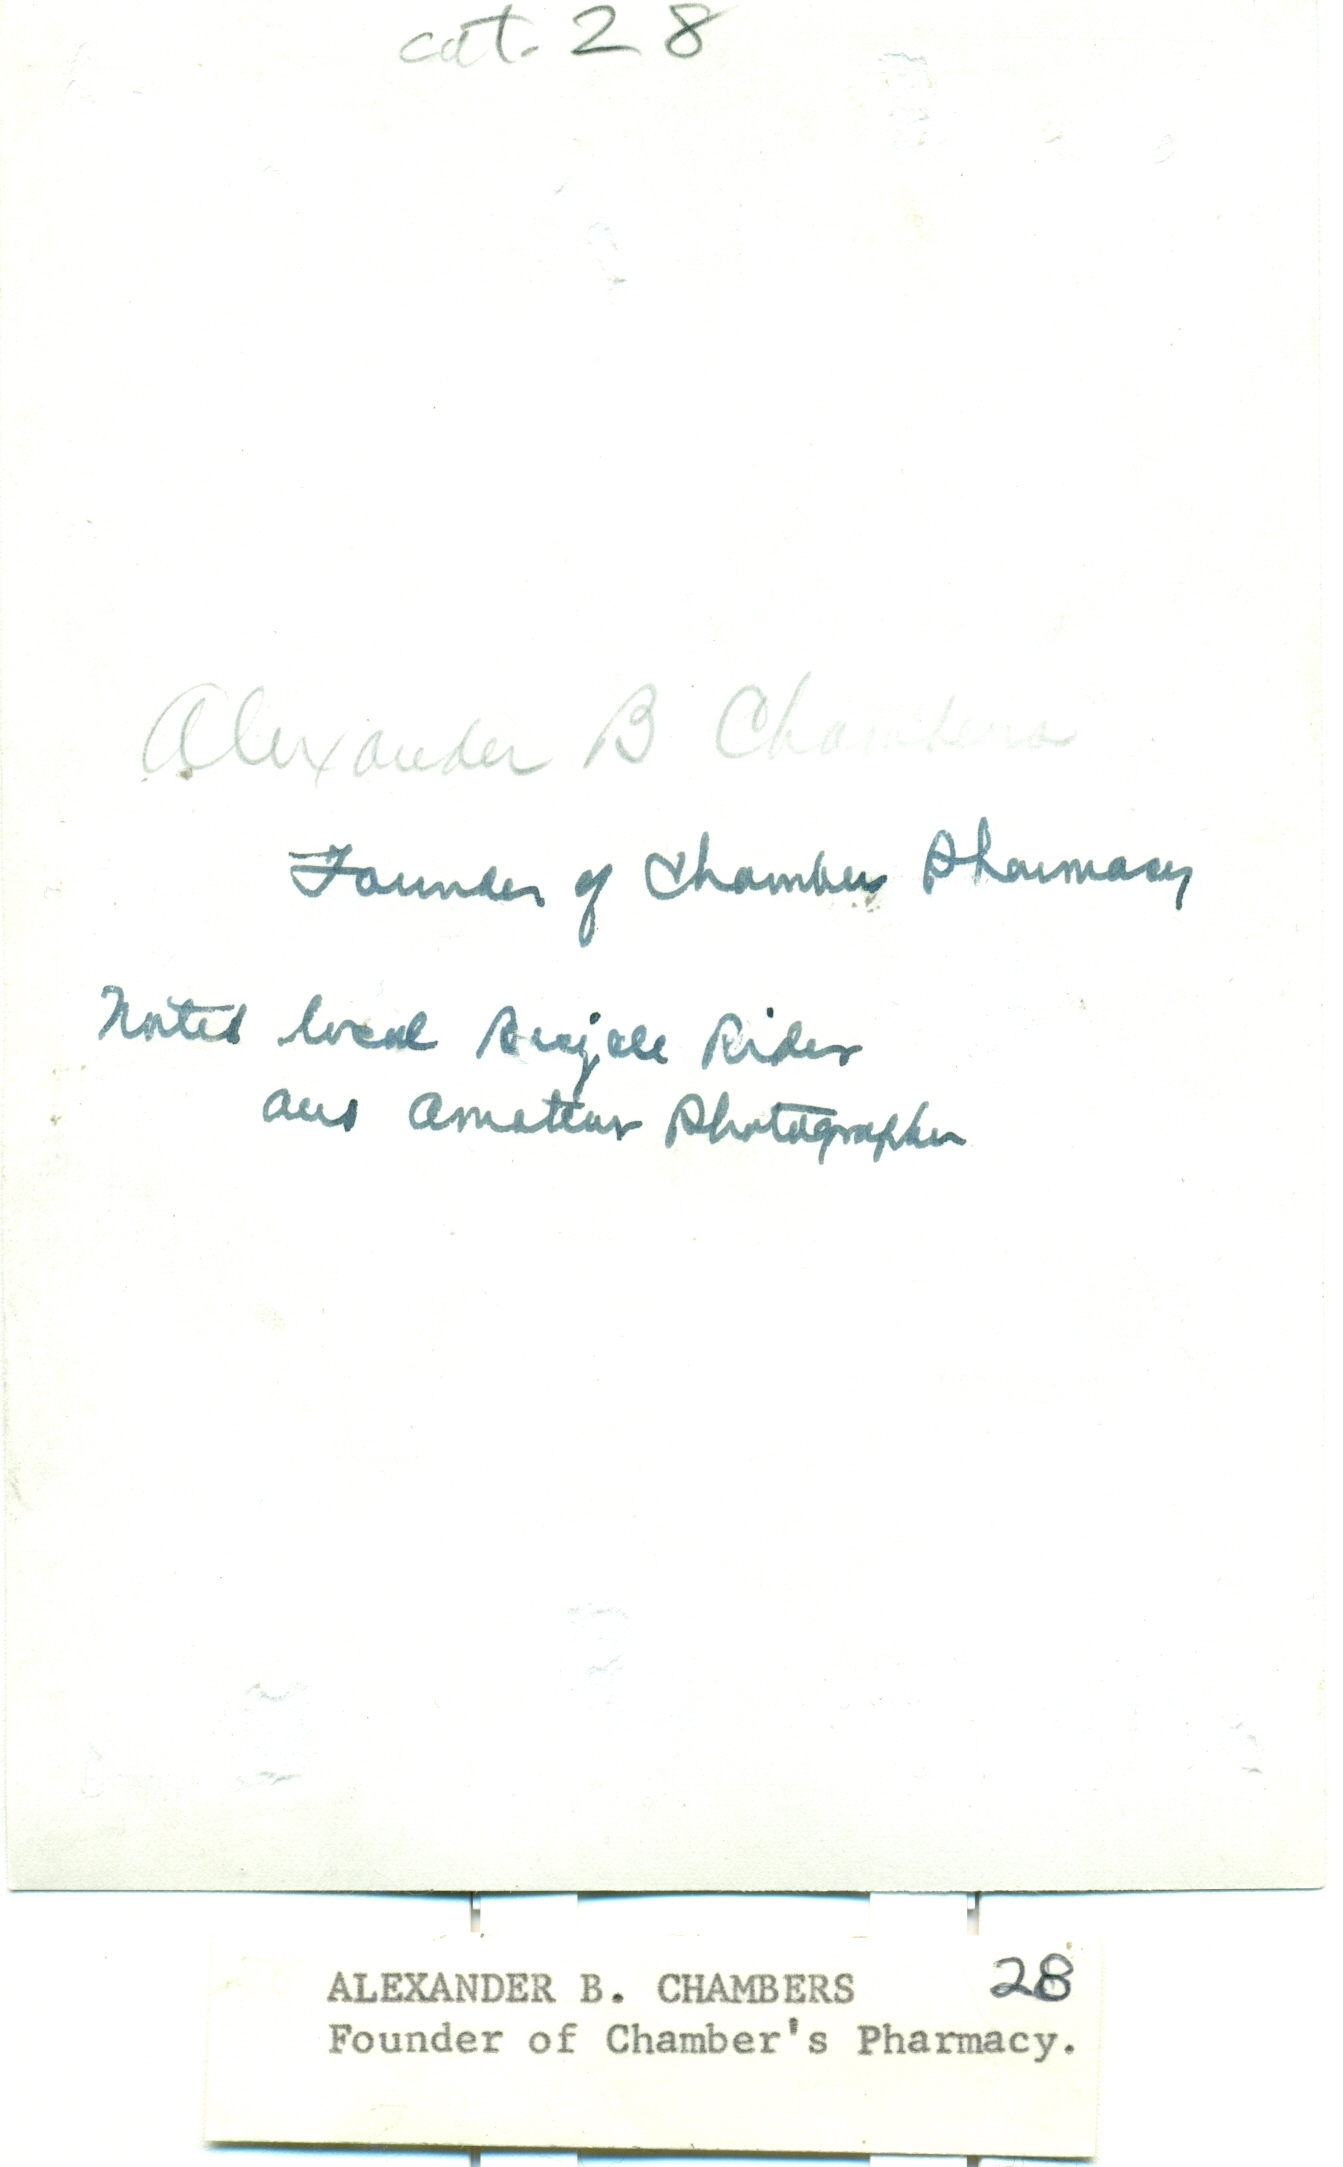 cat. 28
Alexander B Chambers
Founder of Chambers Pharmacy
Noted local Bicycle Rider
and Amateur Photographer
ALEXANDER B. CHAMBERS 28
Founder of Chamber's Pharmacy.